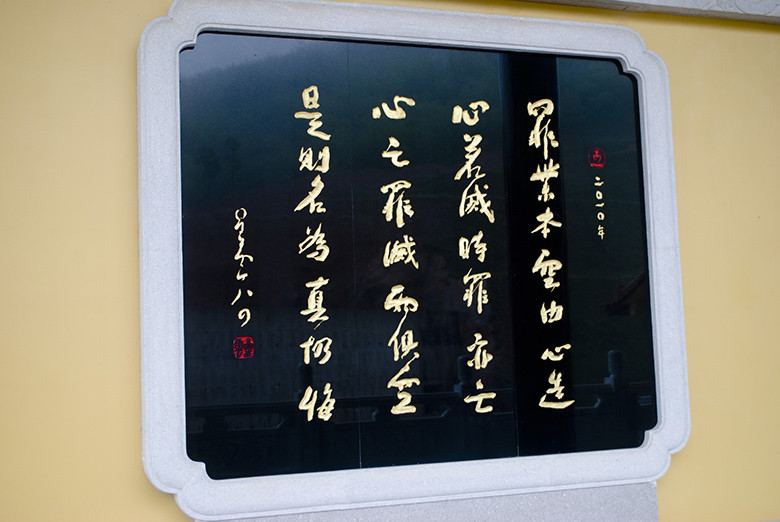 二〇一〇年
罪業本空由心造
心若滅時罪亦亡
心亡罪滅兩俱空
是則名為真懺悔